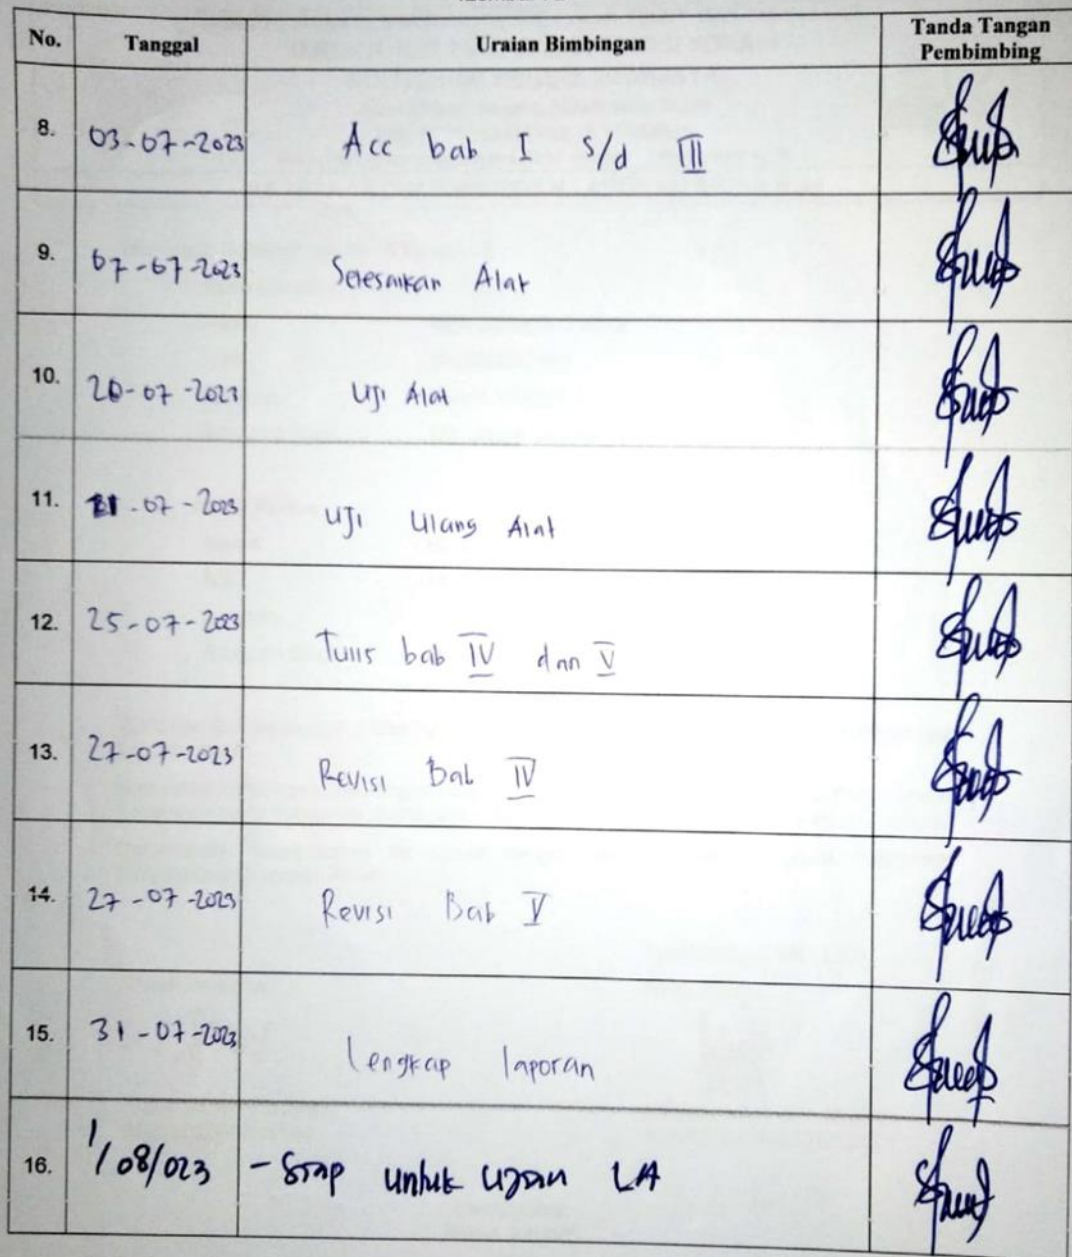 No. Tanggal Uraian Bimbingan Tanda Tangan Pembimbing
8. 03-07-2023 Acc bab I s/d III
9. 07-07-2023 Selesaikan Alat
10. 20-07-2023 Uji Alat
11. 21-07-2023 Uji Ulang Alat
12. 25-07-2023 Tulis bab IV dan V
13. 27-07-2023 Revisi Bab IV
14. 27-07-2023 Revisi Bab V
15. 31-07-2023 lengkap laporan
16. 1/08/023 - Siap untuk Ujian LA